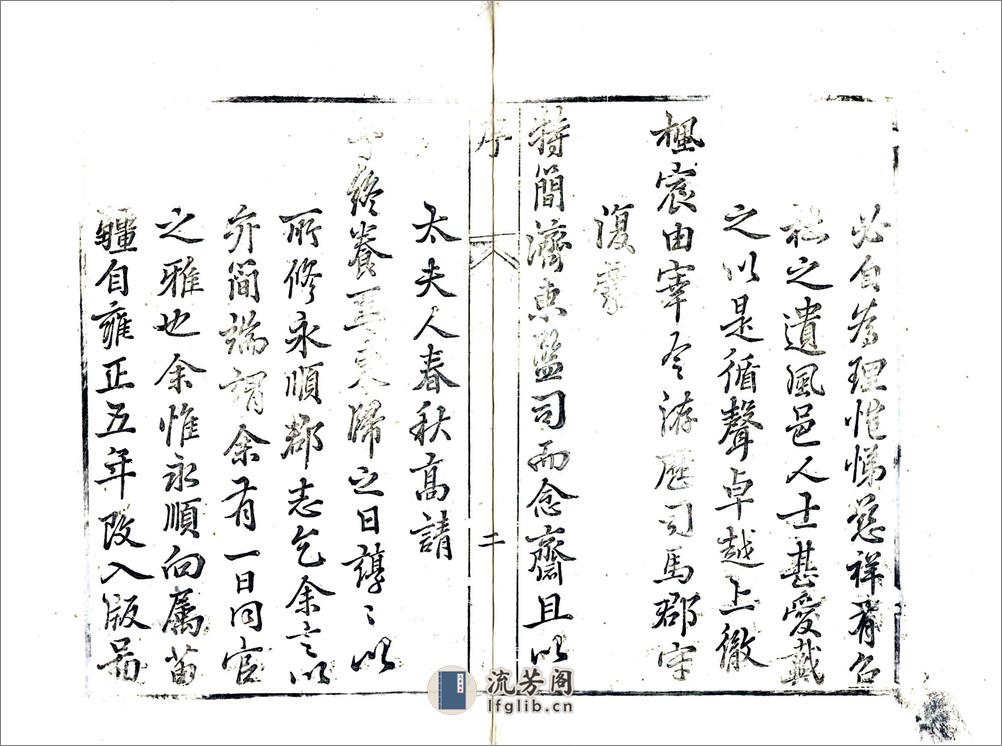 必自為理愷悌慈祥有召
社之遺風邑人士甚愛戴
之以是循聲卓越上徹
楓宸由宰令游歷司馬郡守
復蒙
特簡濟東監司而念齋且以
序
二
太夫人春秋高請
終養耳東歸之日諄諄以
所修永順郡志乞余言以
弁簡端謂余有一日同官
之雅也余惟永順向屬苗
疆自雍正五年改入版圖
流芳阁
lfglib.cn